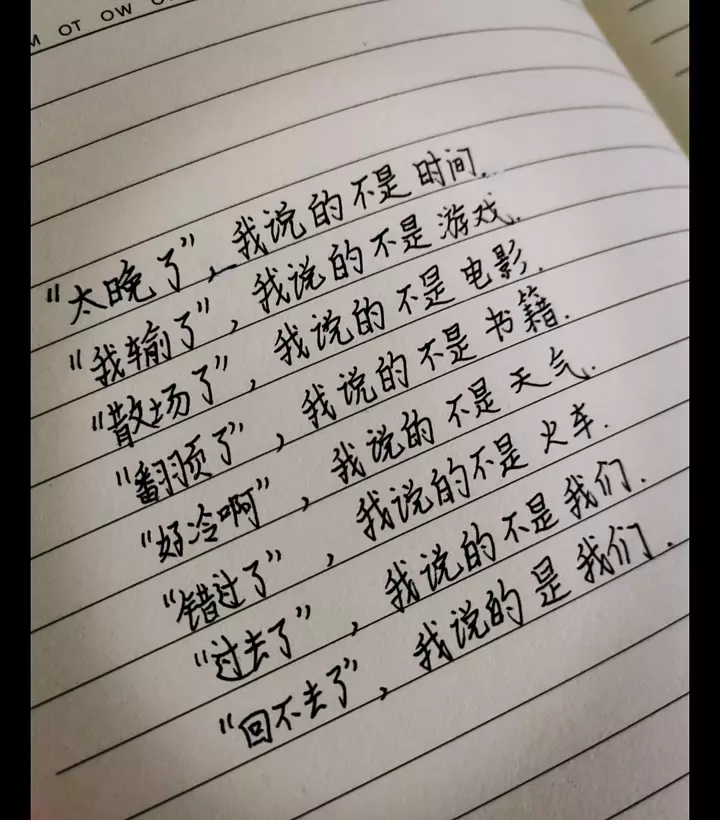 M OT OW
“太晚了”，我说的不是时间.
“我输了”，我说的不是游戏.
“散场了”，我说的不是电影.
“翻页了”，我说的不是书籍.
“好冷啊”，我说的不是天气.
“错过了”，我说的不是火车.
“过去了”，我说的不是我们.
“回不去了”，我说的是我们.